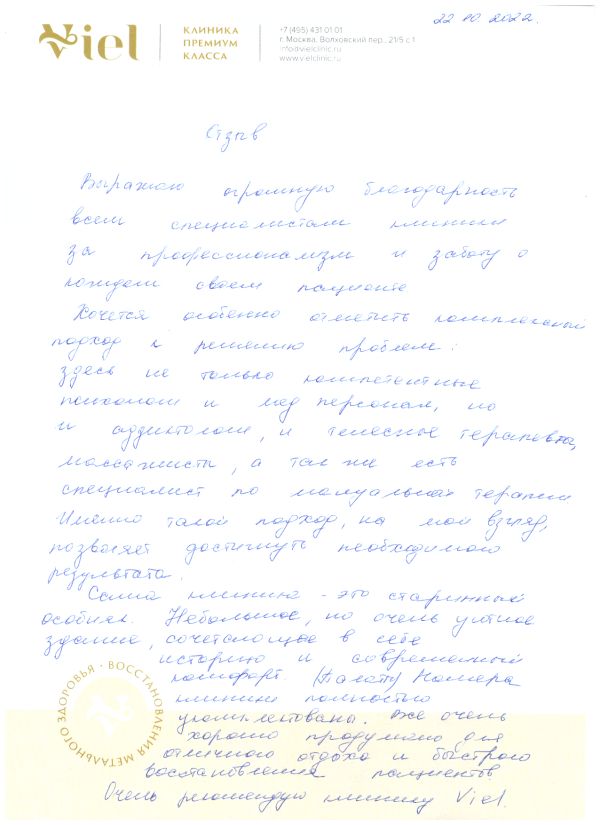 22.10.2022.
Viel
КЛИНИКА
ПРЕМИУМ
КЛАССА
+7 (495) 431 01 01
г. Москва, Волховский пер., 21/5 с 1
info@vielclinic.ru
www.vielclinic.ru
Отзыв
Выражаю огромную благодарность
всем специалистам клиники
за профессионализм и заботу о
каждом своем пациенте
Хочется особенно отметить комплексный
подход к решению проблем:
здесь не только компетентные
психологи и мед персонал, но
и аддиктологи, и телесные терапевты,
массажисты, а так же есть
специалист по мануальной терапии
Именно такой подход, на мой взгляд,
позволяет достигнуть необходимого
результата.
Сама клиника - это старинный
особняк. Небольшое, но очень уютное
здание, сочетающее в себе
историю и современный
комфорт. (Палаты) Номера
клиники полностью
укомплектованы. Все очень
хорошо продумано для
отличного отдыха и быстрого
восстановления пациентов
Очень рекомендую клинику Viel.
ВОССТАНОВЛЕНИЯ МЕТАЛЬНОГО ЗДОРОВЬЯ